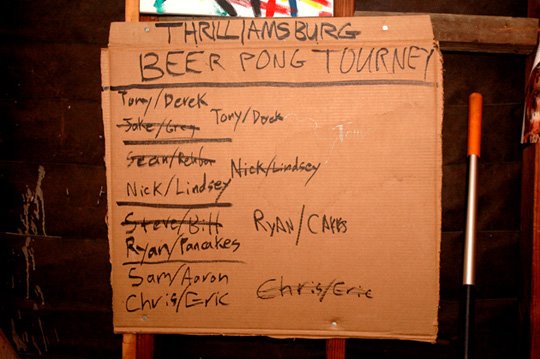 THRILLIAMSBURG
BEER PONG TOURNEY
Tony/Derek
Jake/Greg
Tony/Derek
Sean/
Nick/Lindsey
Nick/Lindsey
Steve/Bill
Ryan/Pancakes
RYAN/CAKES
Sam/Aaron
Chris/Eric
Chris/Eric